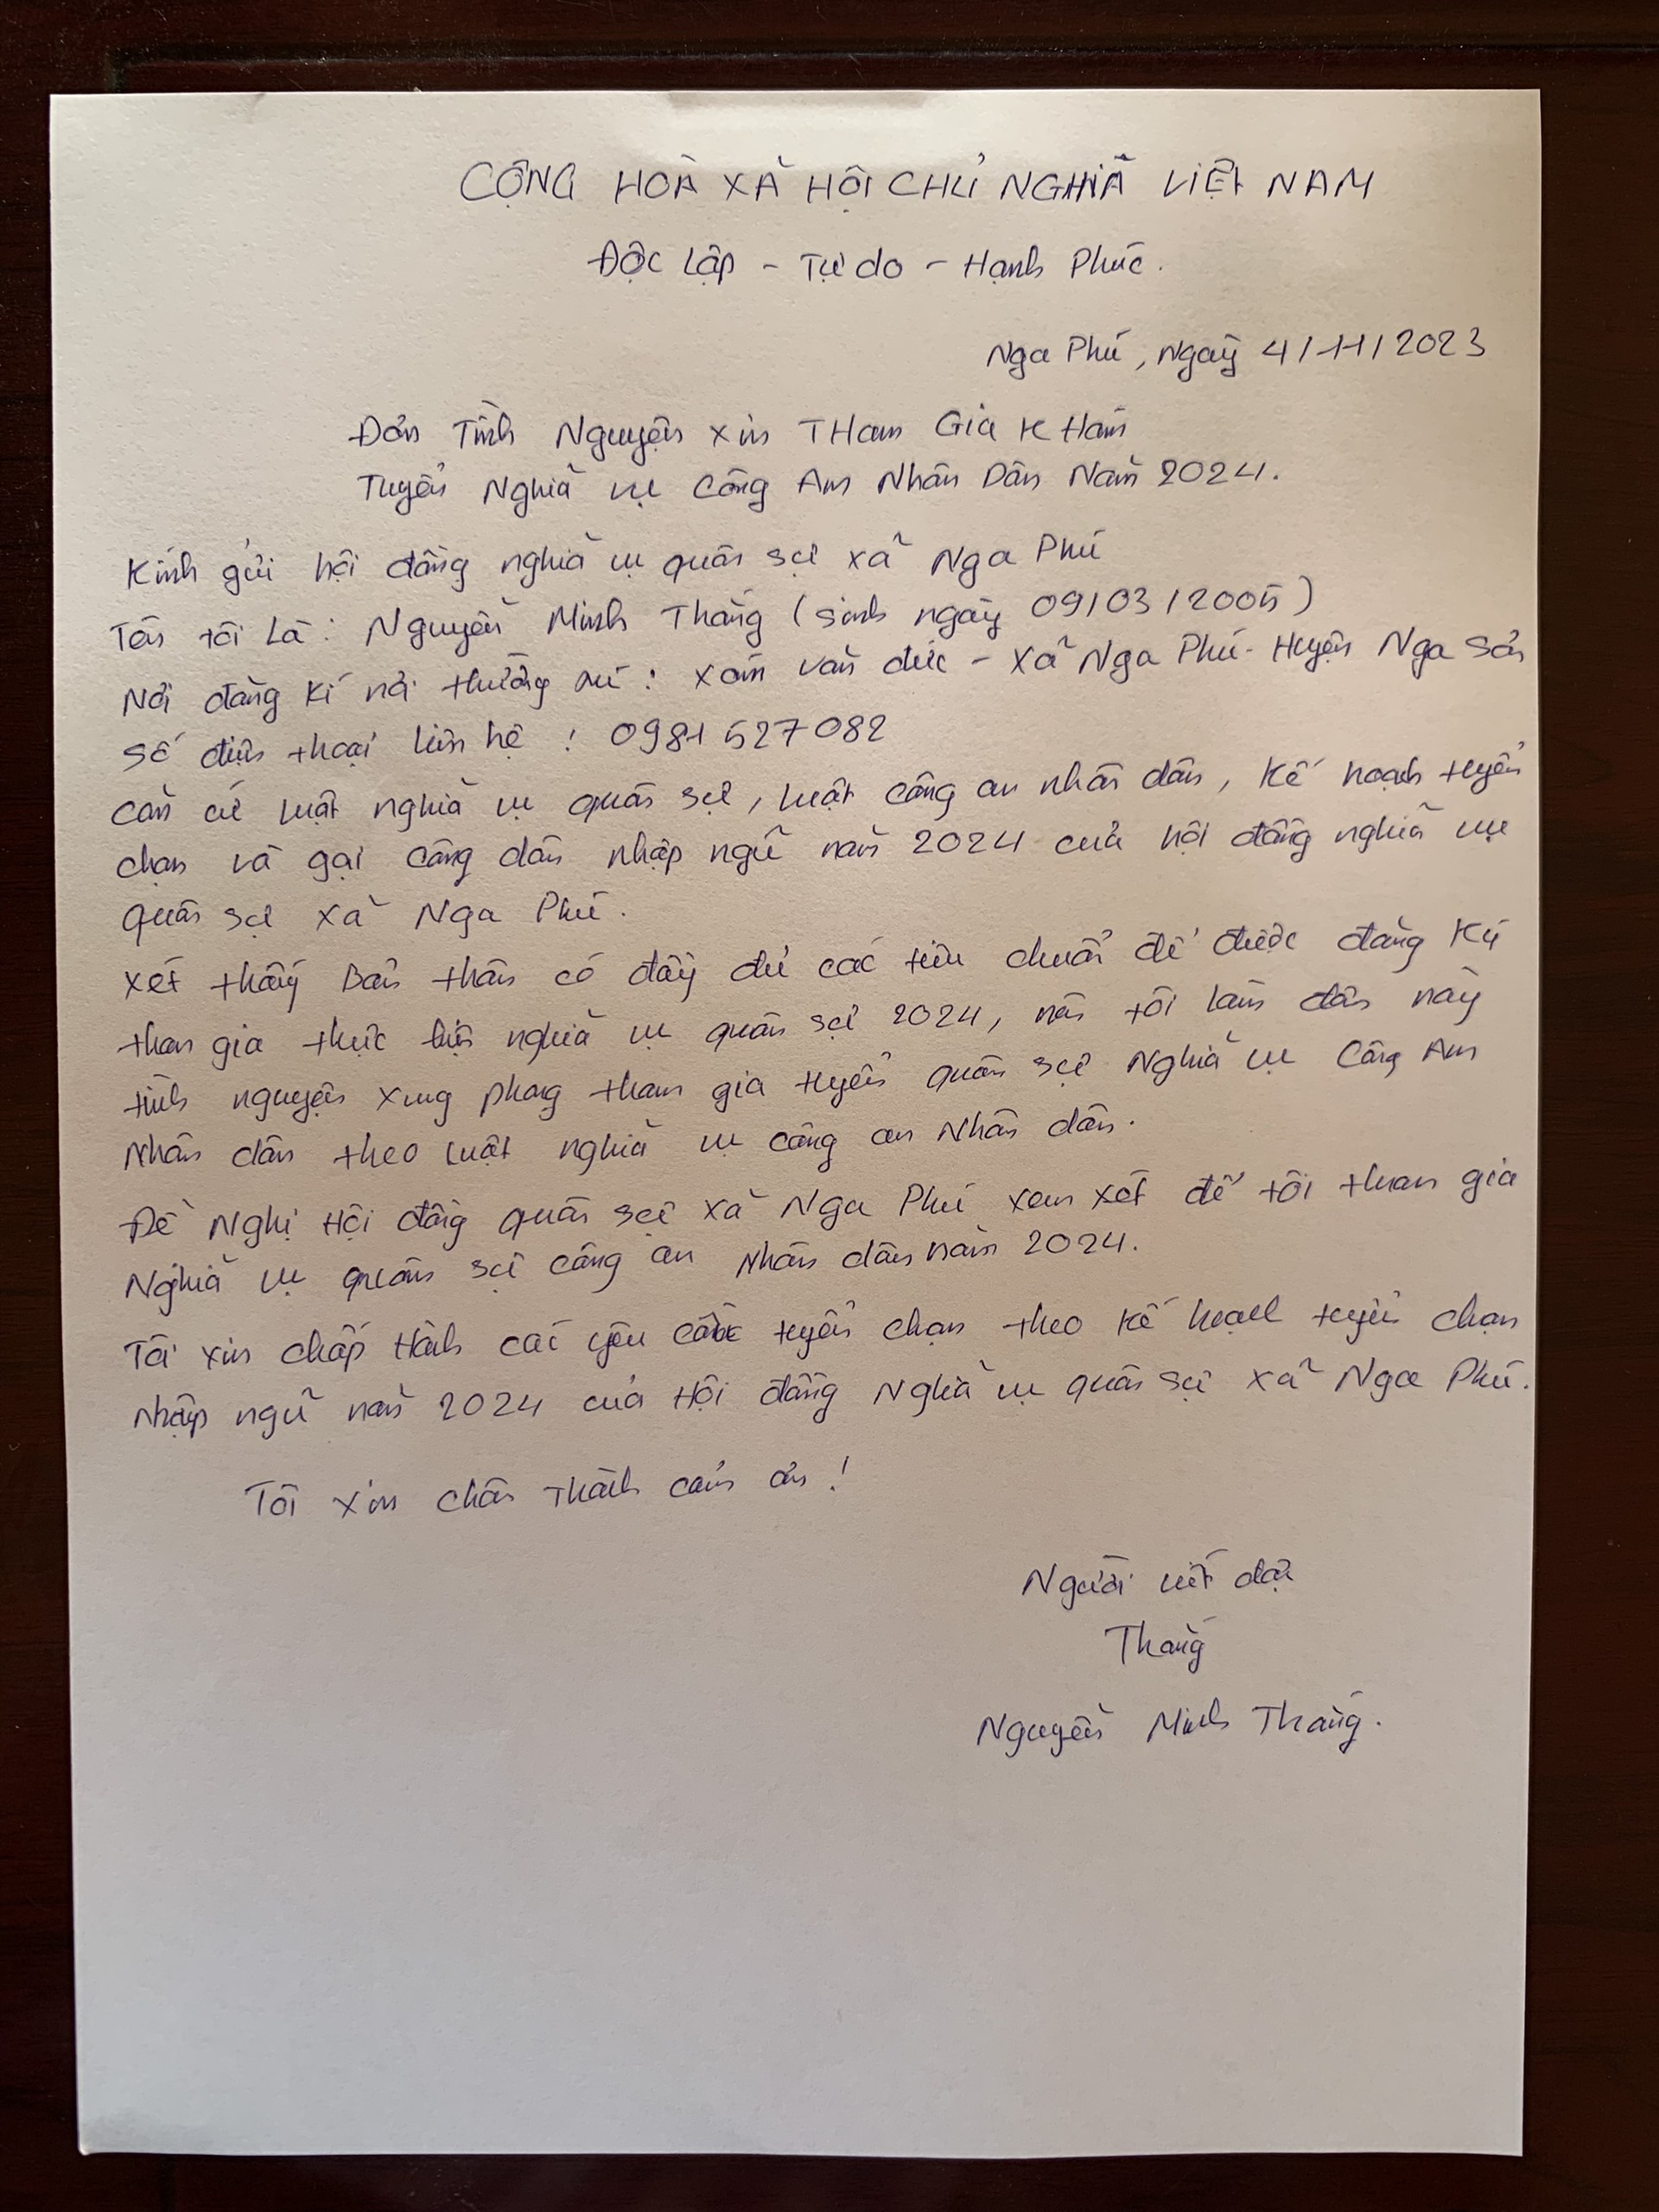 CỘNG HOÀ XÃ HỘI CHỦ NGHĨA VIỆT NAM
Độc Lập - Tự do - Hạnh Phúc.
Nga Phú, ngày 4/11/2023
Đơn Tình Nguyện xin THam Gia KHám
Tuyển Nghĩa vụ Công An Nhân Dân Năm 2024.
Kính gửi hội đồng nghĩa vụ quân sự xã Nga Phú
Tên tôi Là: Nguyễn Minh Thắng (sinh ngày 09/03/2005)
Nơi đăng kí nơi thường trú: xóm văn đức - xã Nga Phú - Huyện Nga Sơn
Số điện thoại liên hệ: 0981527082
căn cứ luật nghĩa vụ quân sự, luật công an nhân dân, kế hoạch tuyển
chọn và gọi công dân nhập ngũ năm 2024 của hội đồng nghĩa vụ
quân sự xã Nga Phú.
xét thấy bản thân có đầy đủ các tiêu chuẩn để được đăng ký
tham gia thực hiện nghĩa vụ quân sự 2024, nên tôi làm đơn này
tình nguyện xung phong tham gia tuyển quân sự Nghĩa vụ Công An
Nhân dân theo luật nghĩa vụ công an Nhân dân.
Đề Nghị Hội đồng quân sự xã Nga Phú xem xét để tôi tham gia
Nghĩa vụ quân sự công an Nhân dân năm 2024.
Tôi xin chấp Hành các yêu cầu tuyển chọn theo kế hoạch tuyển chọn
Nhập ngũ năm 2024 của Hội đồng Nghĩa vụ quân sự xã Nga Phú.
Tôi xin chân thành cảm ơn!
Người viết đơn
Thắng
Nguyễn Minh Thắng.